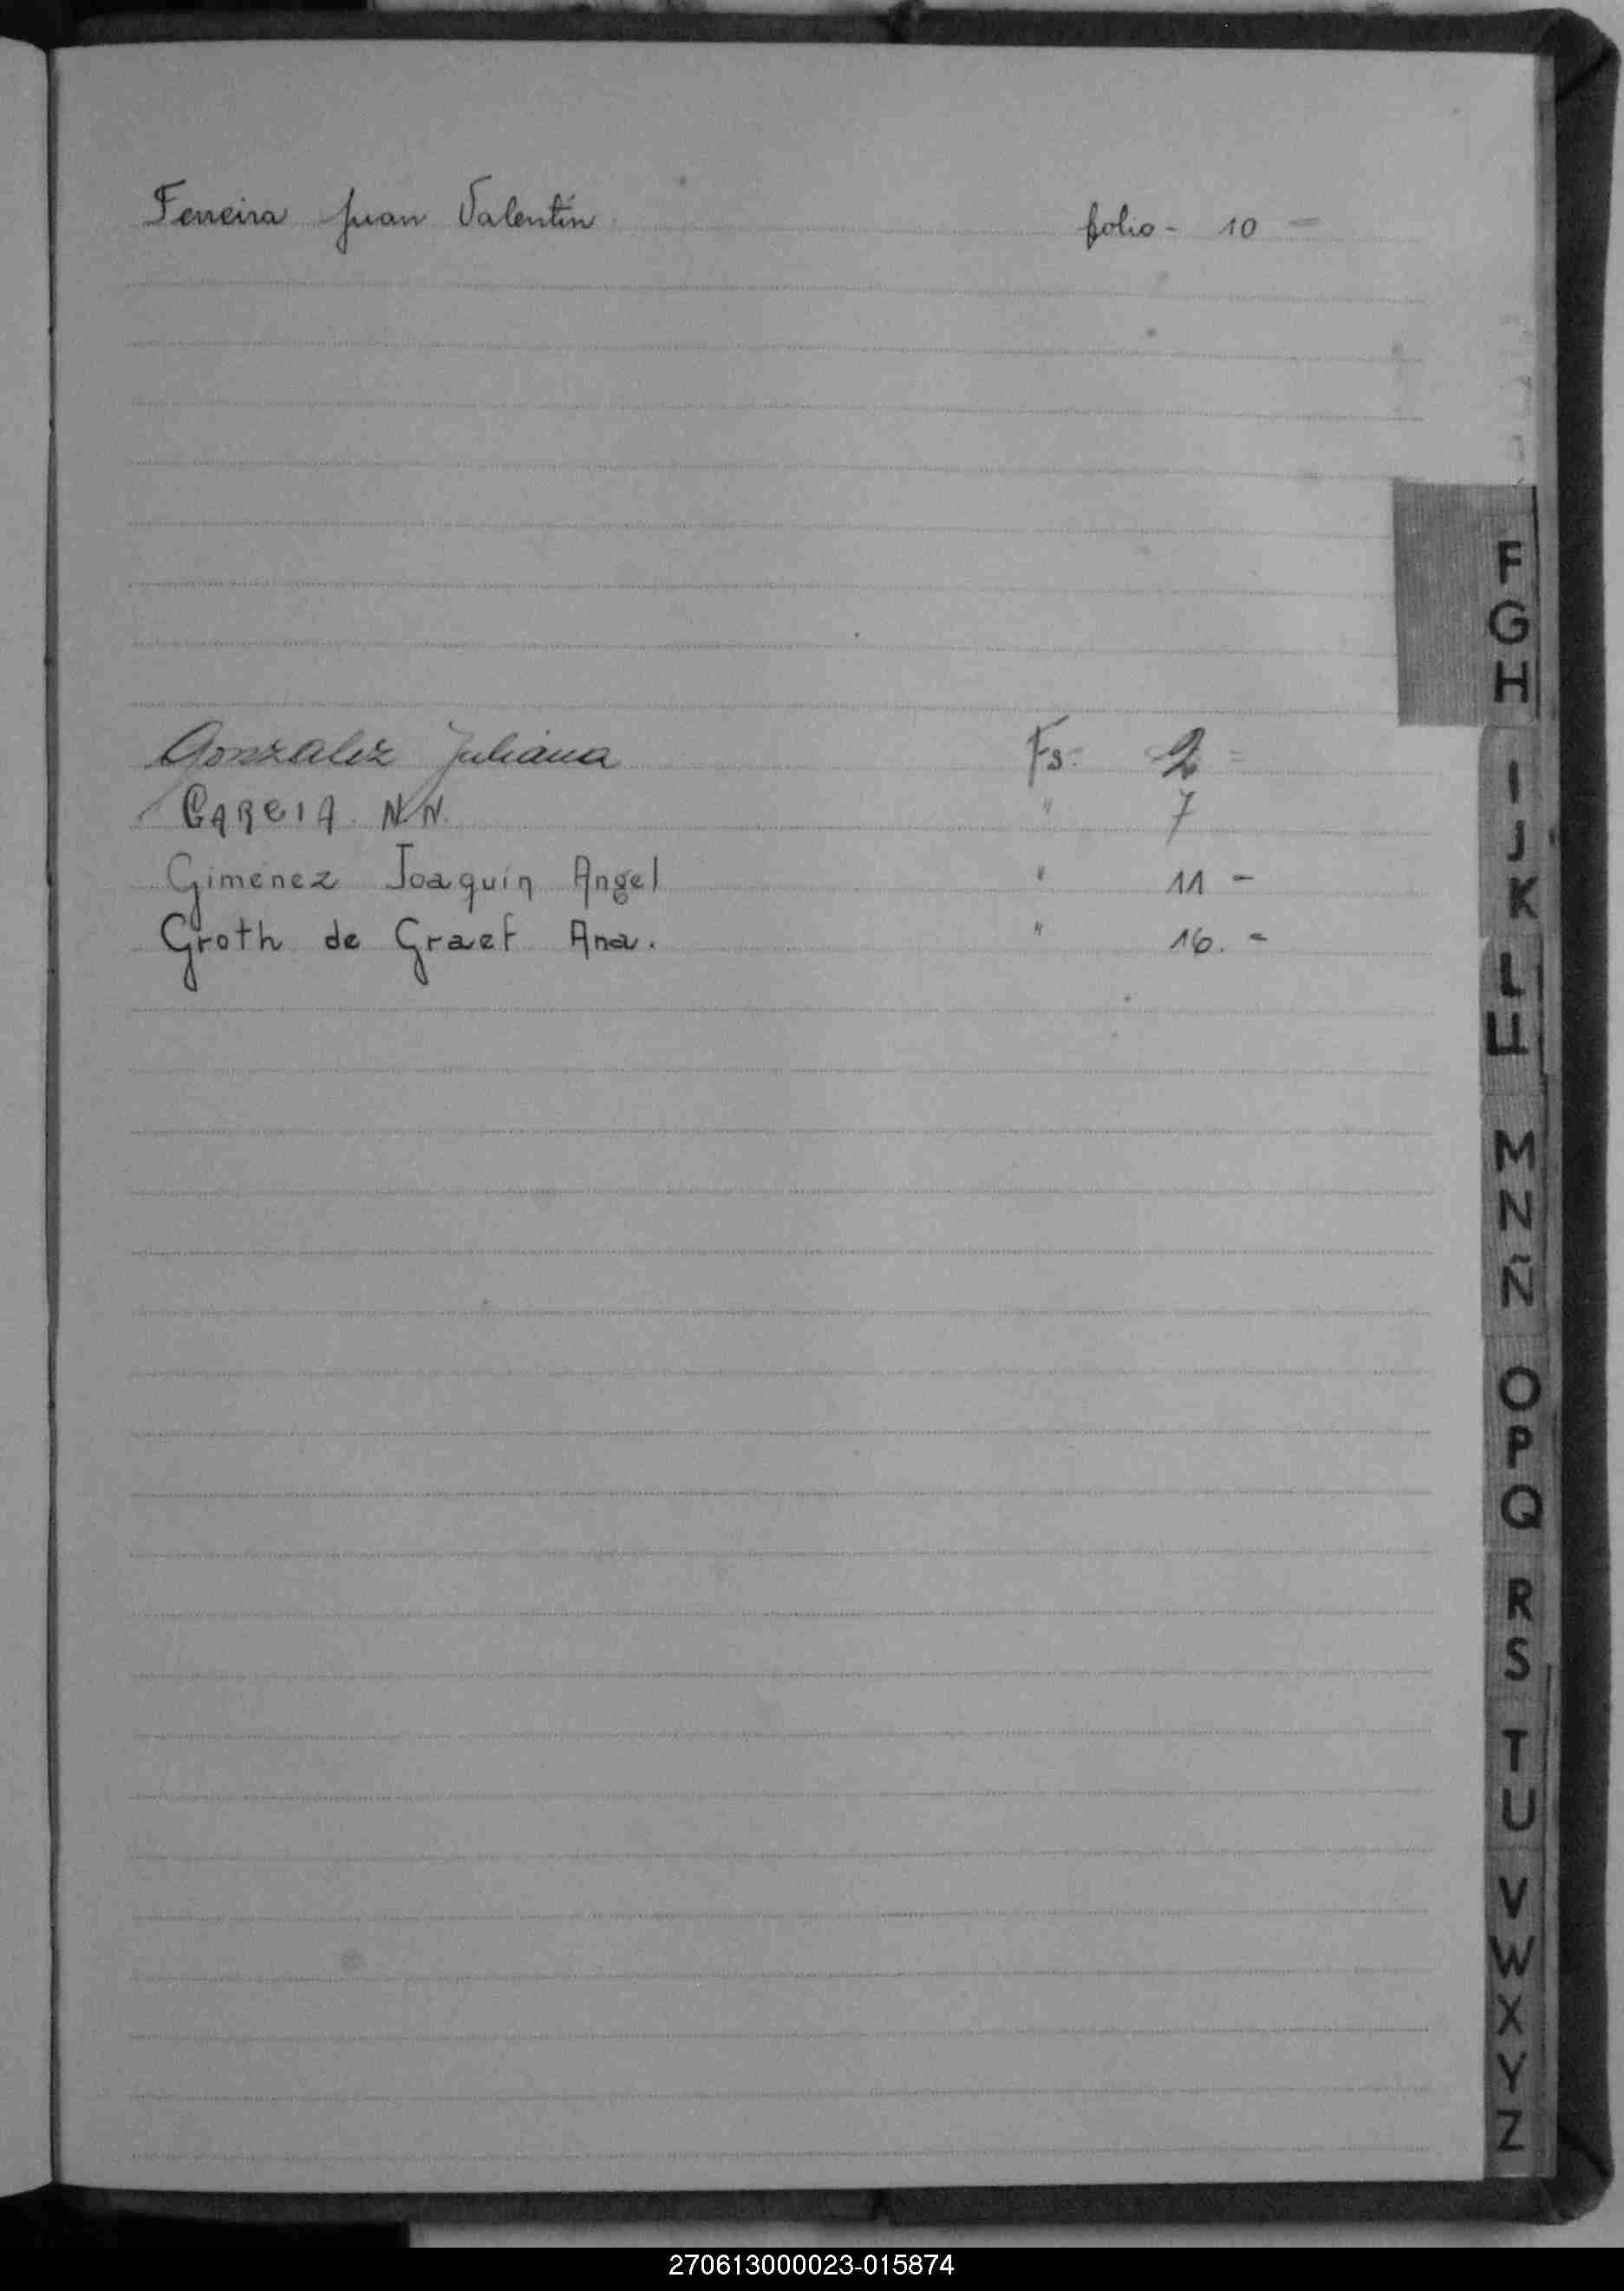 Ferreira Juan Valentín folio - 10 =
Gonzalez Juliana Fs. 2 =
GARCIA. N.N. " 7
Gimenez Joaquin Angel " 11 -
Groth de Graef Ana. " 16. =
F
G
H
I
J
K
L
LL
M
N
Ñ
O
P
Q
R
S
T
U
V
W
X
Y
Z
270613000023-015874